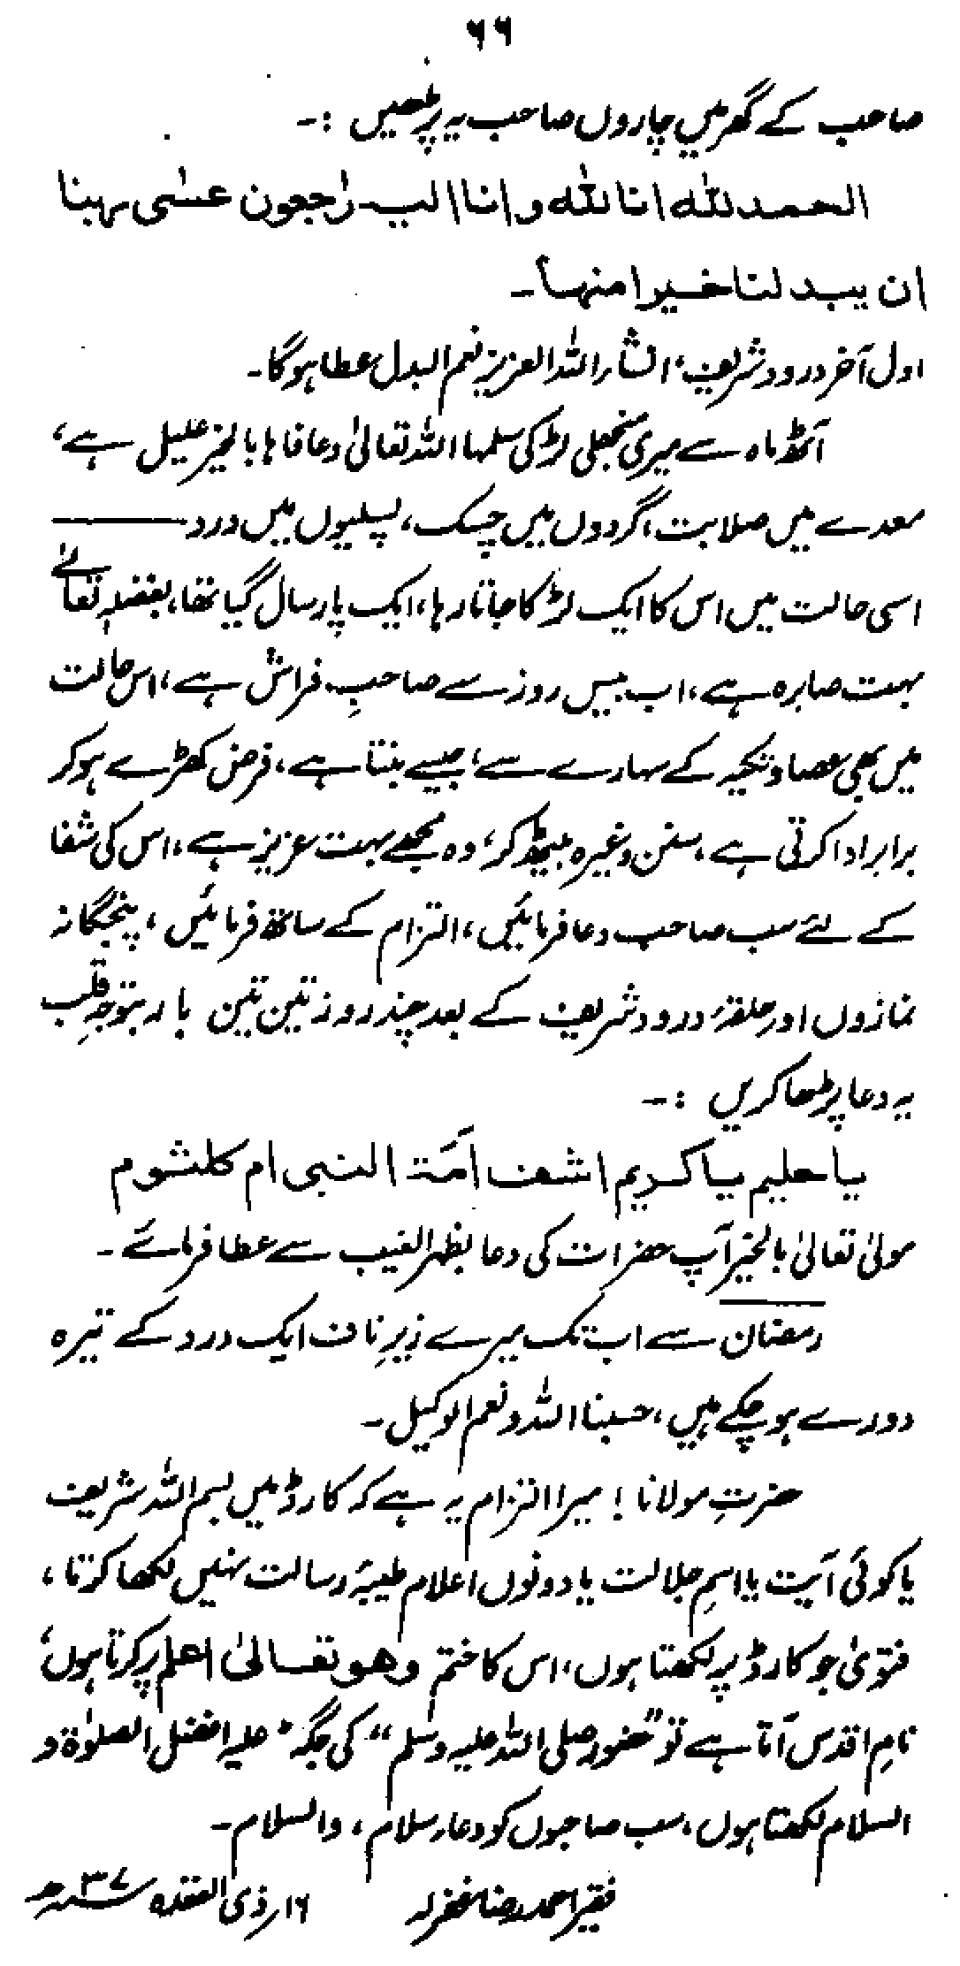 ۶۶
صاحب کے گھر میں چاروں صاحب یہ پڑھیں :۔
الحمد للہ انا للہ و انا الیہ رٰجعون عسٰی ربنا
ان یبدلنا خیرا منہا۔
اول آخر درود شریف، انشاء اللہ العزیز نعم البدل عطا ہوگا۔
آٹھ ماہ سے میری منجھلی لڑکی سلمہا اللہ تعالیٰ وعافاہا بالخیر علیل ہے،
معدے میں صلابت، گردوں میں چسک، پسلیوں میں درد ———
اسی حالت میں اس کا ایک لڑکا جاتا رہا، ایک پار سال گیا تھا، بفضلہٖ تعالےٰ
بہت صابرہ ہے، اب بیس روز سے صاحبِ فراش ہے، اس حالت
میں بھی عصا و تکیہ کے سہارے سے، جیسے بنتا ہے، فرض کھڑے ہوکر
برابر ادا کرتی ہے، سنن وغیرہ بیٹھ کر، وہ مجھے بہت عزیز ہے، اس کی شفا
کے لئے سب صاحب دعا فرمائیں، التزام کے ساتھ فرمائیں، پنجگانہ
نمازوں اور حلقۂ درود شریف کے بعد چند روز تین تین بار بتوجہِ قلب
یہ دعا پڑھا کریں :۔
یا حلیم یا کریم اشف اَمَۃ النبی ام کلثوم
مولیٰ تعالیٰ بالخیر آپ حضرات کی دعا بظہر الغیب سے عطا فرمائے۔
رمضان سے اب تک میرے زیرِ ناف ایک درد کے تیرہ
دورے ہو چکے ہیں، حسبنا اللہ ونعم الوکیل۔
حضرتِ مولانا ! میرا التزام یہ ہے کہ کارڈ میں بسم اللہ شریف
یا کوئی آیت یا اسمِ جلالت یا دونوں اعلام طیبۂ رسالت نہیں لکھا کرتا،
فتویٰ جو کارڈ پر لکھتا ہوں، اس کا ختم وھو تعالیٰ اعلم پر کرتا ہوں،
نامِ اقدس آتا ہے تو "حضور صلی اللہ علیہ وسلم" کی جگہ "علیہ افضل الصلوٰۃ و
السلام لکھتا ہوں، سب صاحبوں کو دعا، سلام، والسلام۔
فقیر احمد رضا غفرلہ ۱۶/ ذی القعدہ ۳۷ھ